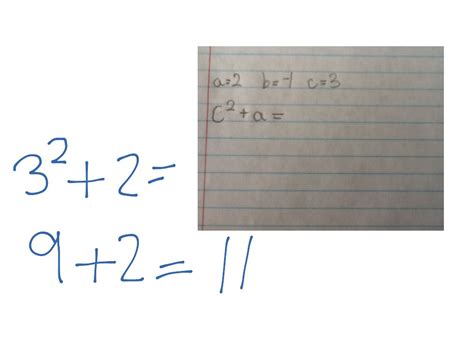 a=2 b=-1 c=3
c²+a=
3²+2=
9+2=11